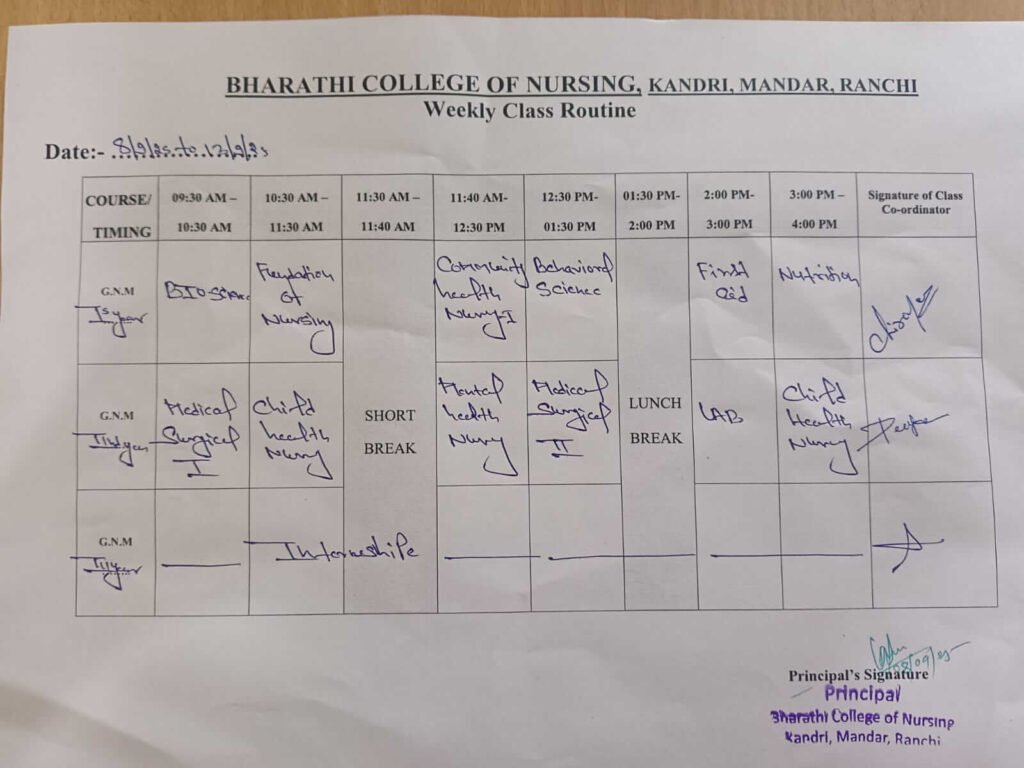 BHARATHI COLLEGE OF NURSING, KANDRI, MANDAR, RANCHI
Weekly Class Routine
Date:- 8/9/25 to 12/9/25
COURSE/ TIMING
09:30 AM – 10:30 AM
10:30 AM – 11:30 AM
11:30 AM – 11:40 AM
11:40 AM- 12:30 PM
12:30 PM- 01:30 PM
01:30 PM- 2:00 PM
2:00 PM- 3:00 PM
3:00 PM – 4:00 PM
Signature of Class Co-ordinator
G.N.M
Ist year
Bio science
Foundation
of
Nursing
Community
health
Nursing-I
Behavioral
Science
First
aid
Nutrition
G.N.M
IInd year
Medical
Surgical
I
Child
health
Nursing
SHORT
BREAK
Mental
health
Nursing
Medical
Surgical
II
LUNCH
BREAK
LAB
Child
Health
Nursing
G.N.M
III year
Interneshipe
08/09/25
Principal's Signature
Principal
Bharathi College of Nursing
Kandri, Mandar, Ranchi